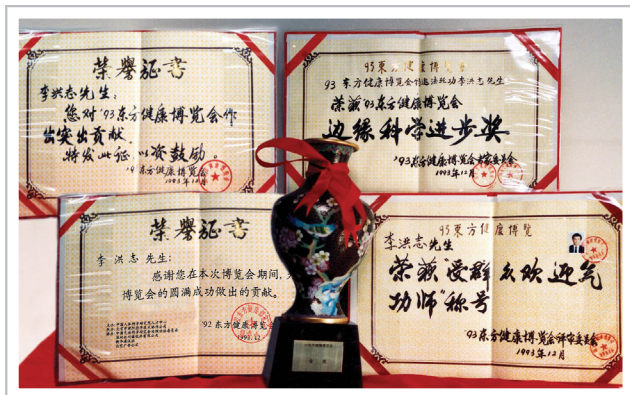 荣誉证书
李洪志先生:
您对'93东方健康博览会作
出突出贡献.
特发此证,以资鼓励。
'93东方健康博览会
1993年12月
93东方健康博览会
93 东方健康博览会
李洪志先生
荣获'93东方健康博览会
边缘科学进步奖
'93东方健康博览会
1993年12月
荣誉证书
李 洪 志 先生:
感谢您在本次博览会期间,
博览会的圆满成功做出的贡献。
'92东方健康博览会
93东方健康博览
李洪志先生
荣获“受群众欢迎气
功师”称号
'93东方健康博览会评审委员会
1993年12月